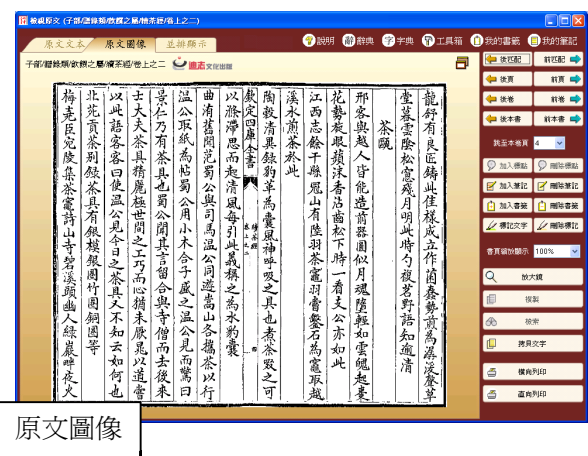 檢視原文 (子部/譜錄類/飲饌之屬/續茶經/卷上之二)
原文文本
原文圖像
並排顯示
說明
辭典
字典
工具箱
我的書籤
我的筆記
子部/譜錄類/飲饌之屬/續茶經/卷上之二
迪志文化出版
龍舒有良匠鑄此佳樣成立作菌蠢勢煎為潺湲聲草
堂暮雲陰松窻殘月明此時勺複茗野語知逾清
茶甌
邢客與越人皆能造前器圓似月魂墮輕如雲魄起棗
花勢旋眼蘋沫香沾齒松下時一看支公亦如此
江西志餘干縣冠山有陸羽茶竈羽嘗鑿石為竈取越
溪水煎茶於此
陶穀清異錄豹革為囊風神呼吸之具也煮茶啜之可
欽定四庫全書
續茶經
卷上之二
以滌滯思而起清風每引此義稱之為水豹囊
曲洧舊聞范蜀公與司馬温公同遊嵩山各攜茶以行
温公取紙為帖蜀公用小木合子盛之温公見而驚曰
景仁乃有茶具也蜀公聞其言留合與寺僧而去後來
士大夫茶具精麗極世間之工巧而心猶未厭晁以道嘗
以此語客客曰使温公見今日之茶具又不知云如何也
北苑貢茶別錄茶具有銀模銀圈竹圈銅圈等
梅堯臣宛陵集茶竈詩山寺碧溪頭幽人緑巖畔夜火
後匹配
前匹配
後頁
前頁
後卷
前卷
後本書
前本書
跳至本卷頁
4
加入標點
刪除標點
加入筆記
刪除筆記
加入書籤
刪除書籤
標記文字
刪除標記
書頁縮放顯示
100%
放大鏡
複製
檢索
拷貝文字
橫向列印
直向列印
原文圖像